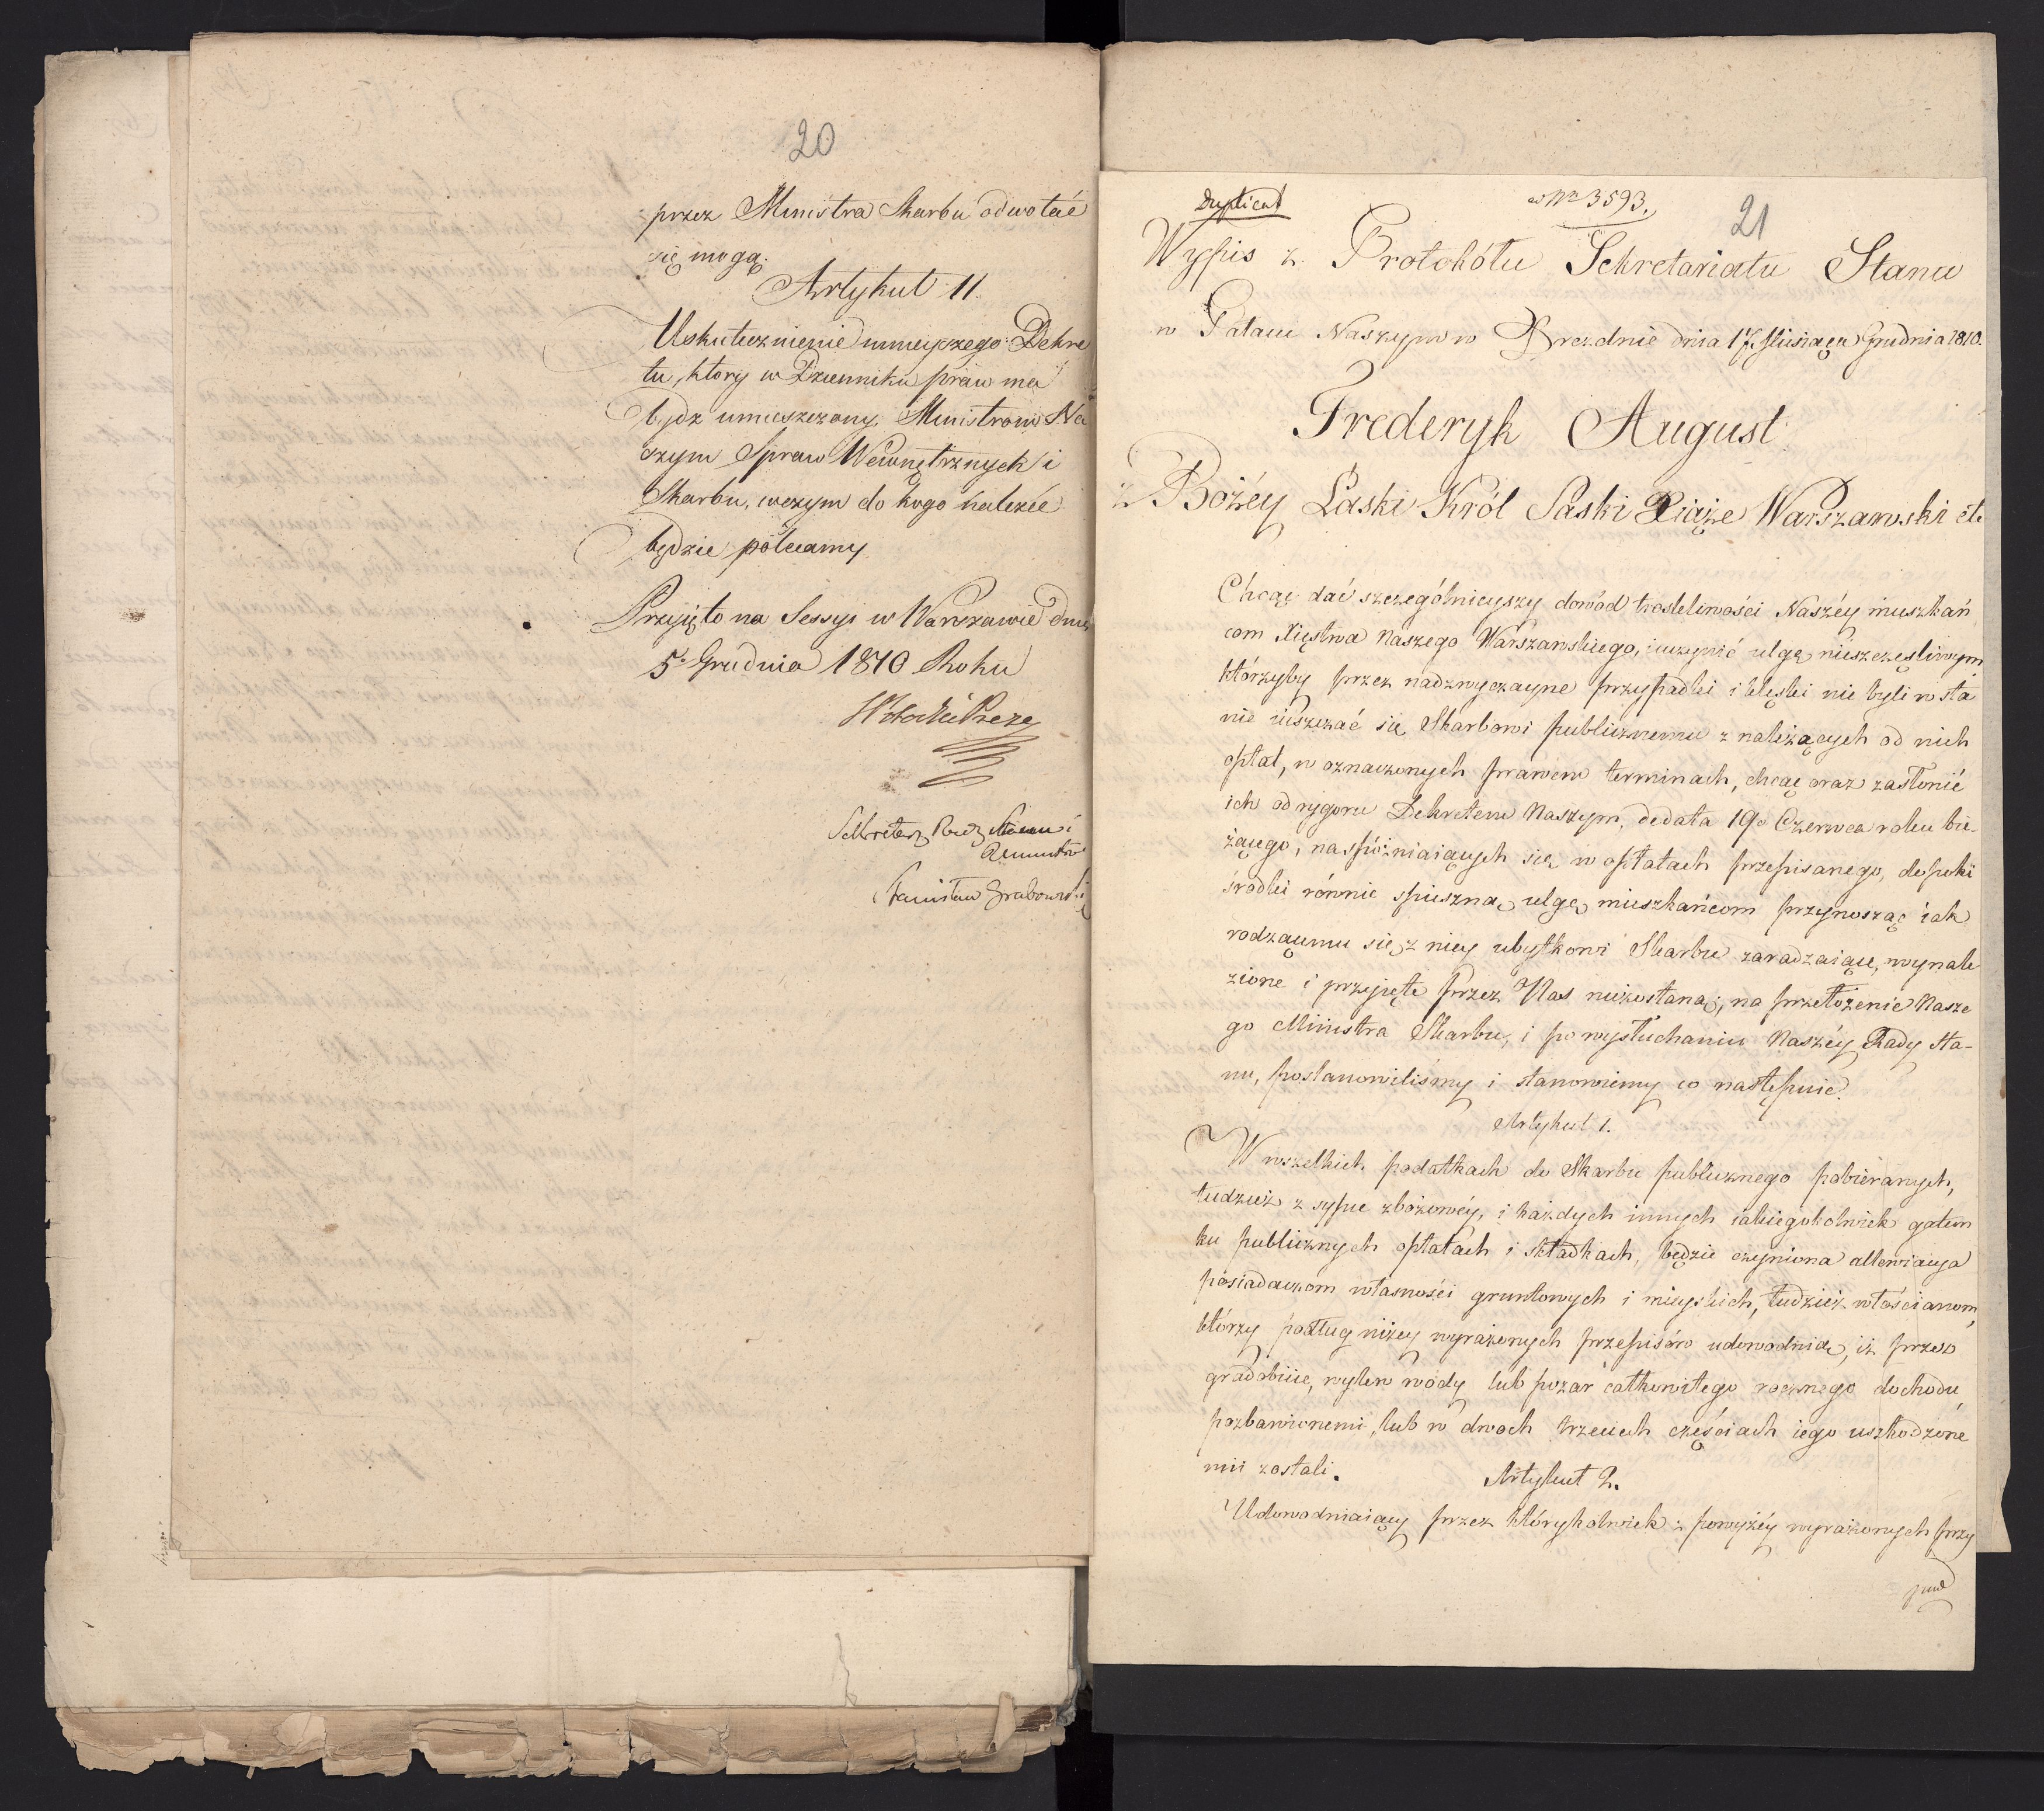 20
przez Ministra Skarbu odwołać
się mogą.
Artykuł 11.
Uskutecznienie ninieyszego Dekre
tu, który w Dzienniku praw ma
bydź umieszczony, Ministrom Na
szym Spraw Wewnętrznych i
Skarbu, wczym do kogo należéć
będzie polecamy
Przyjęto na Sessyi w Warszawie dnia
5° Grudnia 1810 Roku
Sekretarz Rady Stanu i
Ministrów
Stanisław Grabowski
Duplicat
ad Nro 3593.
21
Wypis z Protokółu Sekretariatu Stanu
w Pałacu Naszym w Dreznie dnia 17. Miesiąca Grudnia 1810.
Frederyk August
z Bożéy Łaski Król Saski Xiąże Warszawski etc
Chcąc dać szczególnieyszy dowód troskliwości Naszéy mieszkań
com Xięstwa Naszego Warszawskiego, i uczynić ulgę nieszczęśliwym
którzyby przez nadzwyczayne przypadki i klęski nie byli w sta
nie uiszczać się Skarbowi publicznemu z należących od nich
opłat, w oznaczonych prawem terminach, chcąc oraz zasłonić
ich od rygoru Dekretem Naszym, de data 19o Czerwca roku bie-
żącego, na spóźniaiących się w opłatach przepisanego, dopóki
środki równie spieszną ulgę mieszkańcom przynosząc iak
rodzącemu się z niey ubytkowi Skarbu zaradzaiące, wynale
zione i przyjęte przez Nas niezostaną; na przełożenie Nasze
go Ministra Skarbu, i po wysłuchaniu Naszéy Rady Sta-
nu, postanowiliśmy i stanowiemy co następuie.
Artykuł 1.
W wszelkich podatkach do Skarbu publicznego pobiéranych,
tudzież z sypce zbożowéy, i każdych innych iakiegokolwiek gatun
ku publicznych opłatach i składkach, będzie czyniona allewiacya
posiadaczom własności gruntowych i mieyskich, tudzież włościanom,
którzy podług niżey wyrażonych przepisów udowodnią, iż przez
gradobicie, wylew wody lub pożar całkowitego rocznego dochodu
pozbawionemi, lub w dwóch trzecich częściach iego uszkodzone
mi zostali.
Artykuł 2.
Udowodniaiący przez którykolwiek z powyżéy wyrażonych przy